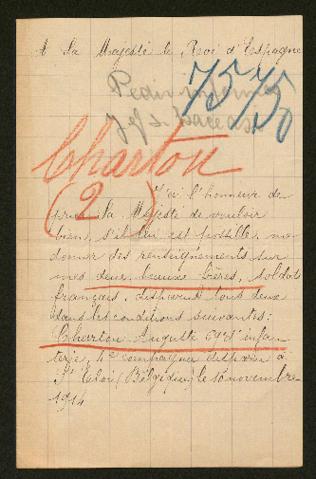 A Sa Majesté le Roi d'Espagne
7575
Pedir informes
Charton
(2)
J'ai l'honneur de
prier Sa Majesté de vouloir
bien, s'il lui est possible, me
donner des renseignements sur
mes deux beaux frères, soldats
français, disparus tous deux
dans les conditions suivantes:
Charton Auguste 69e d'infan-
terie, compagnie disparu à
St Eloi (Belgique) le 10 novembre
1914